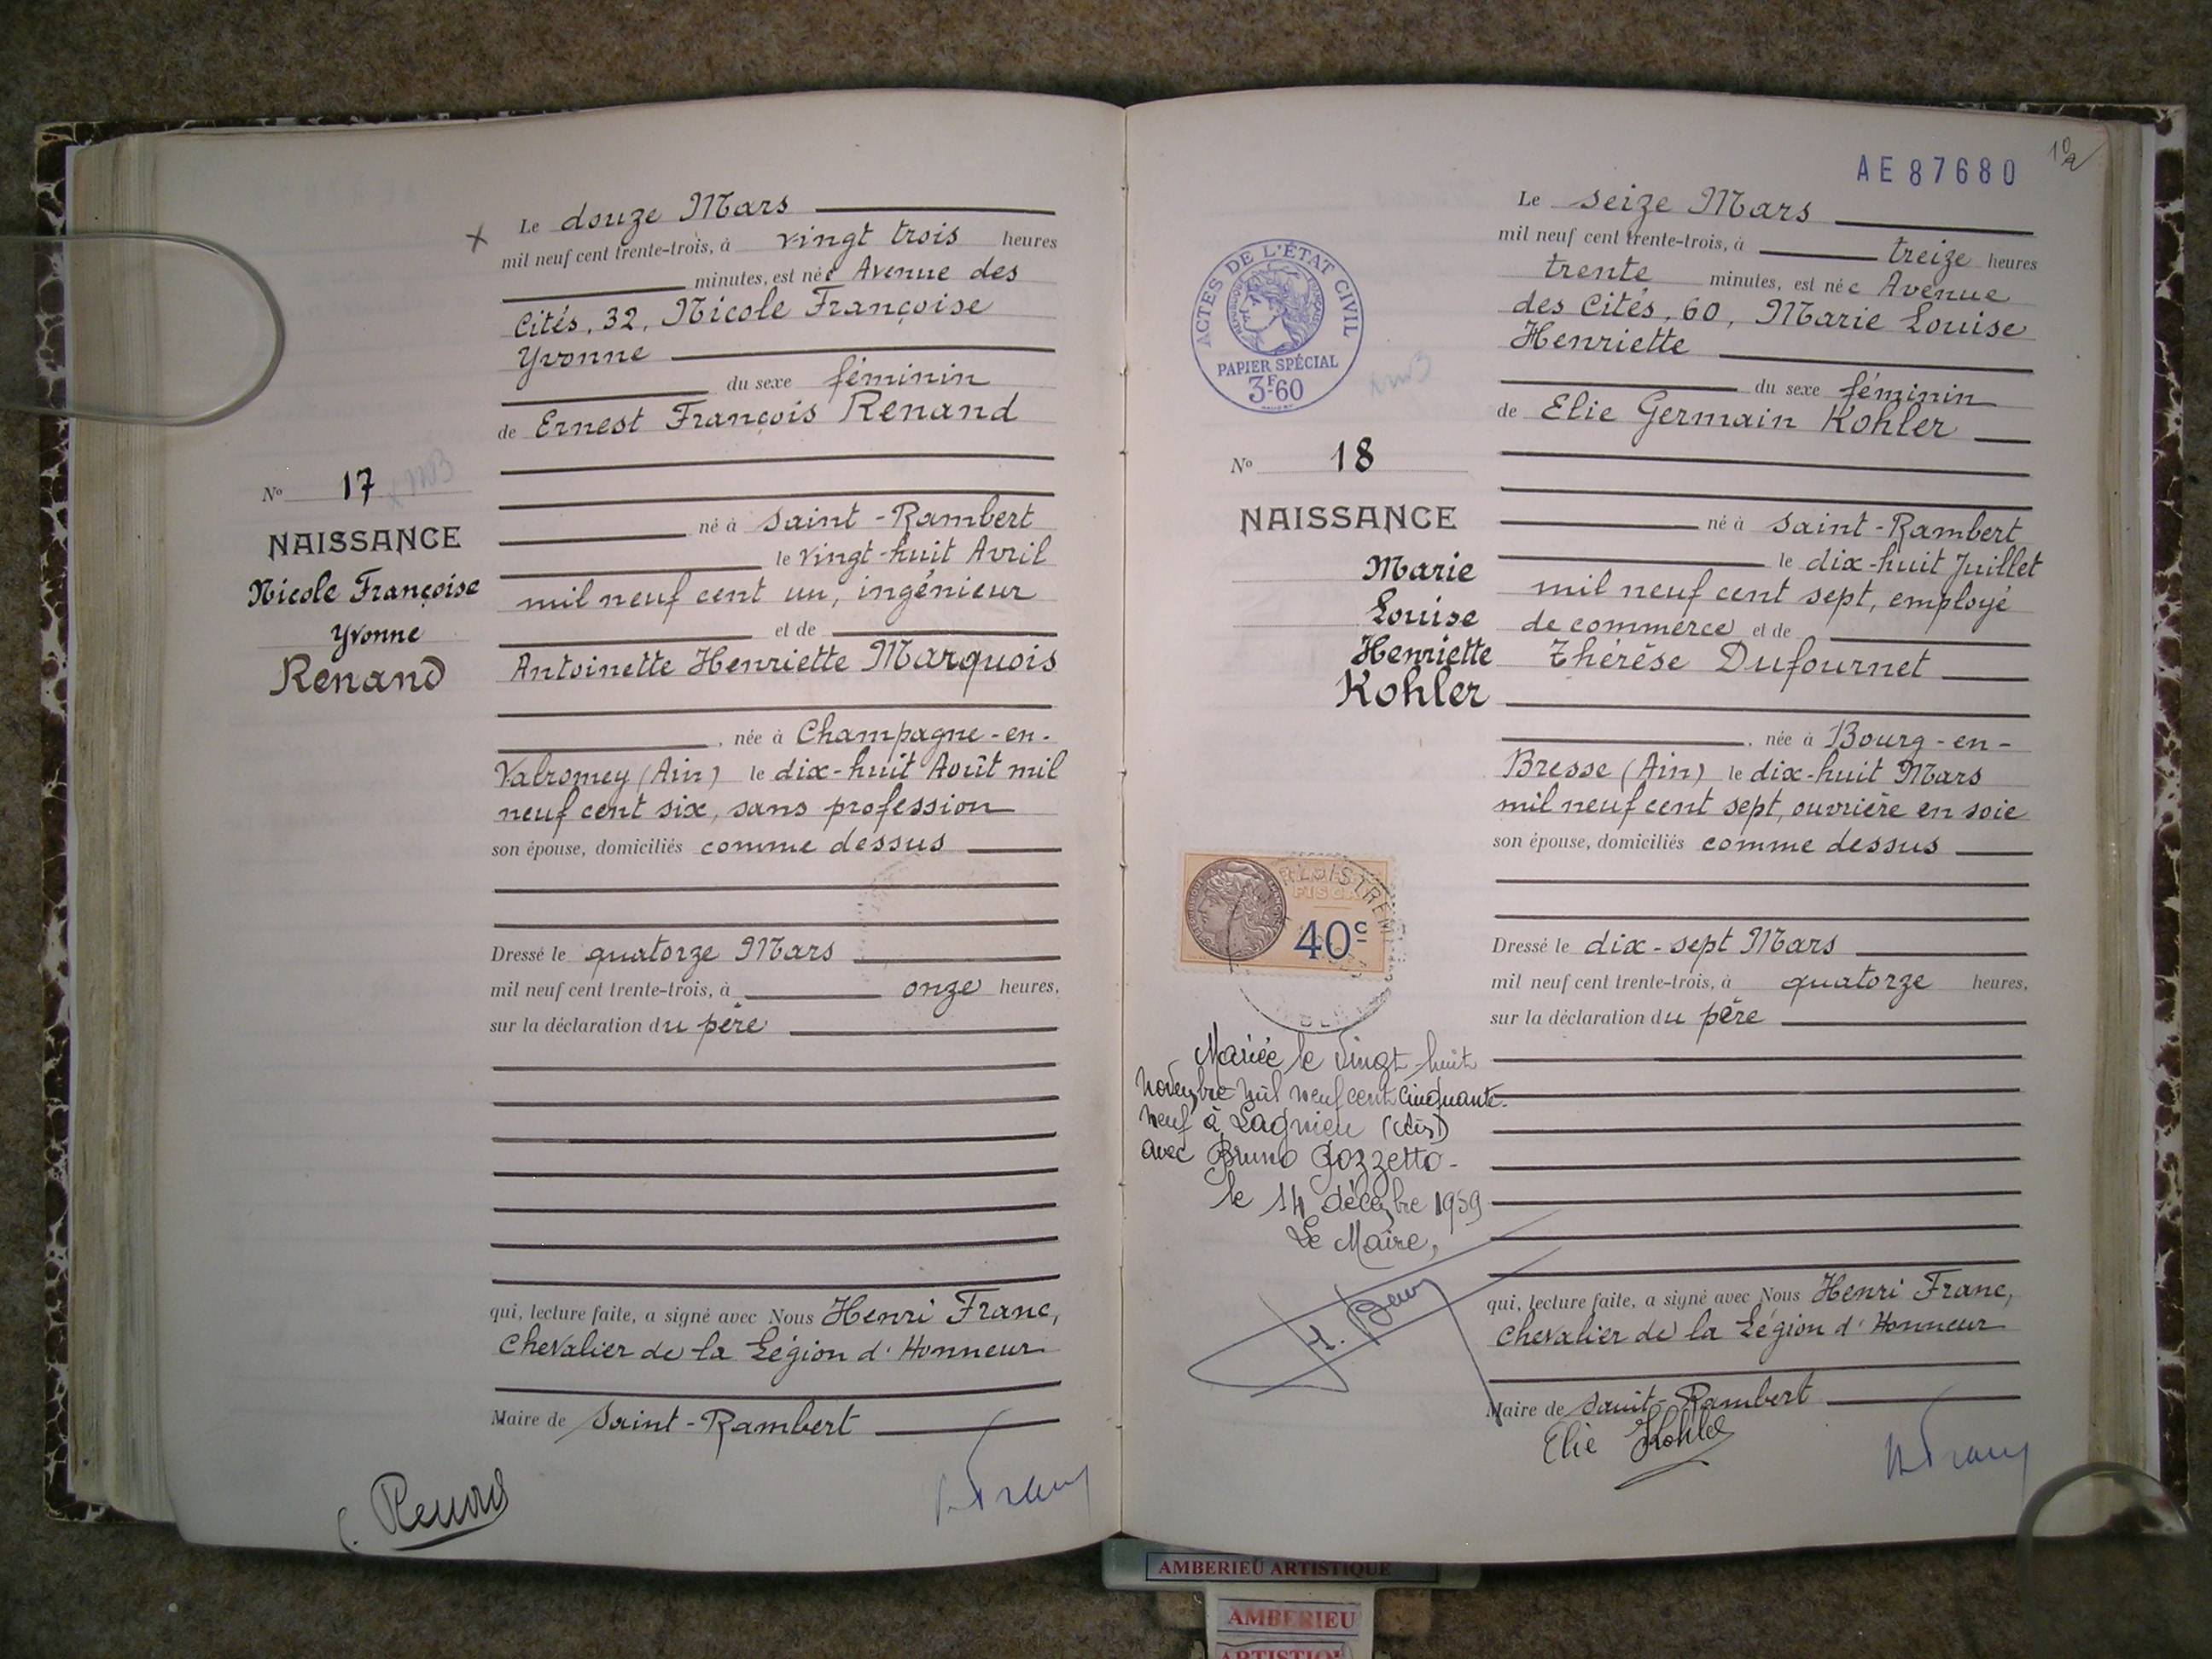 Le douze Mars
mil neuf cent trente-trois, à vingt trois heures
minutes, est née Avenue des
Cités, 32, Nicole Françoise
Yvonne
du sexe féminin
de Ernest François Renand
né à Saint-Rambert
le vingt-huit Avril
mil neuf cent un, ingénieur
et de
Antoinette Henriette Marquois
, née à Champagne-en-
Valromey (Ain) le dix-huit Août mil
neuf cent six, sans profession
son épouse, domiciliés comme dessus
Dressé le quatorze Mars
mil neuf cent trente-trois, à onze heures,
sur la déclaration du père
qui, lecture faite, a signé avec Nous Henri Franc,
Chevalier de la Légion d'Honneur
Maire de Saint-Rambert
No 17
NAISSANCE
Nicole Françoise
Yvonne
Renand
AE 87680
Le seize Mars
mil neuf cent trente-trois, à treize heures
trente minutes, est née Avenue
des Cités, 60, Marie Louise
Henriette
du sexe féminin
de Elie Germain Kohler
né à Saint-Rambert
le dix-huit Juillet
mil neuf cent sept, employé
de commerce et de
Thérèse Dufournet
, née à Bourg-en-
Bresse (Ain) le dix-huit Mars
mil neuf cent sept, ouvrière en soie
son épouse, domiciliés comme dessus
Dressé le dix-sept Mars
mil neuf cent trente-trois, à quatorze heures,
sur la déclaration du père
qui, lecture faite, a signé avec Nous Henri Franc,
Chevalier de la Légion d'Honneur
Maire de Saint-Rambert
Elie Kohler
ACTES DE L'ÉTAT CIVIL
PAPIER SPÉCIAL
3F60
No 18
NAISSANCE
Marie
Louise
Henriette
Kohler
FISCAL
40c
Mariée le vingt-huit
novembre mil neuf cent cinquante-
neuf à Lagnieu (Ain)
avec Bruno Gozzetto-
le 14 décembre 1959
Le Maire,
AMBERIEU ARTISTIQUE
AMBERIEU
ARTISTIQUE